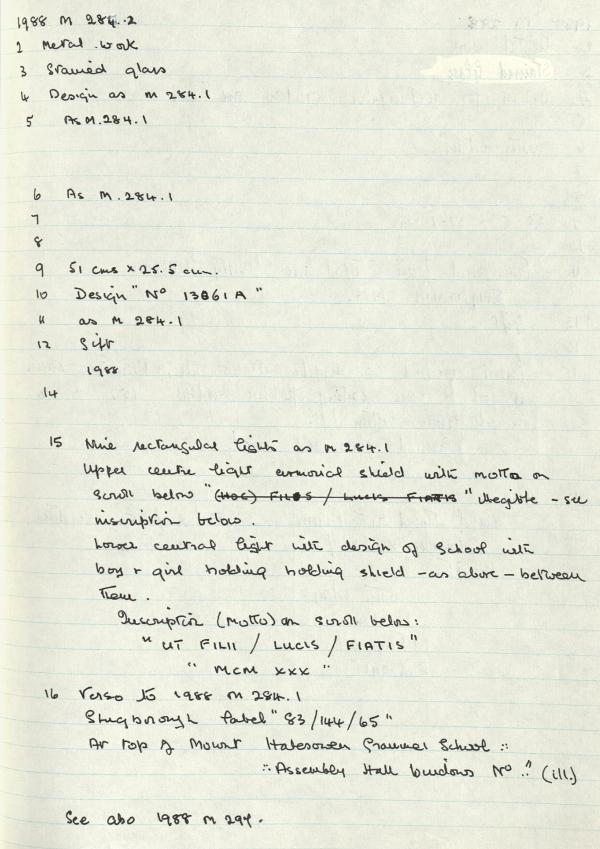 1988 M 284.2
2 Metal work
3 Stained glass
4 Design as M 284.1
5 As M.284.1
6 As M.284.1
7
8
9 51 cms x 25.5 cm.
10 Design "No 13861A"
11 as M 284.1
12 Gift
1988
14
15 Nine rectangular lights as M 284.1
Upper centre light armorial shield with motto on
scroll below "(HOC) FILOS / LUCIS FIATIS" illegible - see
inscription below.
Lower central light with design of School with
boy + girl holding holding shield - as above - between
them.
Inscription (motto) on scroll below:
"UT FILII / LUCIS / FIATIS"
"MCM XXX"
16 Verso to 1988 M 284.1
Shugborough label "83/144/65"
At top of Mount Halesowen Grammar School :.
:. Assembly Hall Windows No .." (ill.)
See also 1988 M 294.